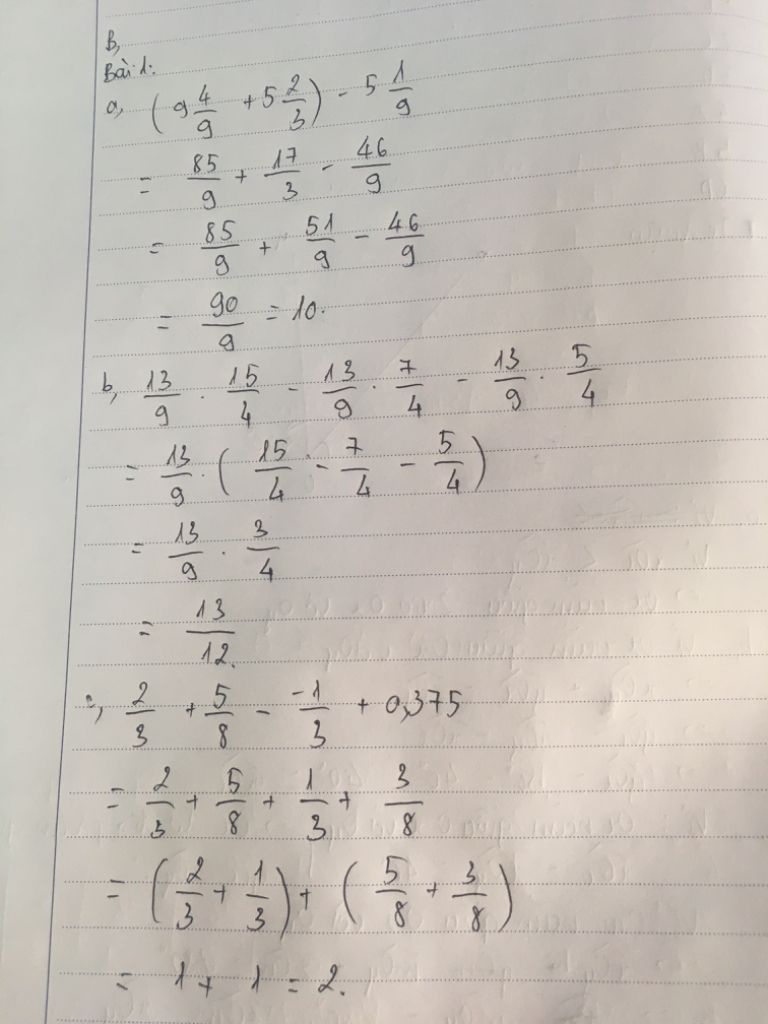 B,
Bài 1:
a, (9 4/9 + 5 2/3) - 5 1/9
= 85/9 + 17/3 - 46/9
= 85/9 + 51/9 - 46/9
= 90/9 = 10.
b, 13/9 . 15/4 - 13/9 . 7/4 - 13/9 . 5/4
= 13/9 . (15/4 - 7/4 - 5/4)
= 13/9 . 3/4
= 13/12.
c, 2/3 + 5/8 - -1/3 + 0,375
= 2/3 + 5/8 + 1/3 + 3/8
= (2/3 + 1/3) + (5/8 + 3/8)
= 1 + 1 = 2.